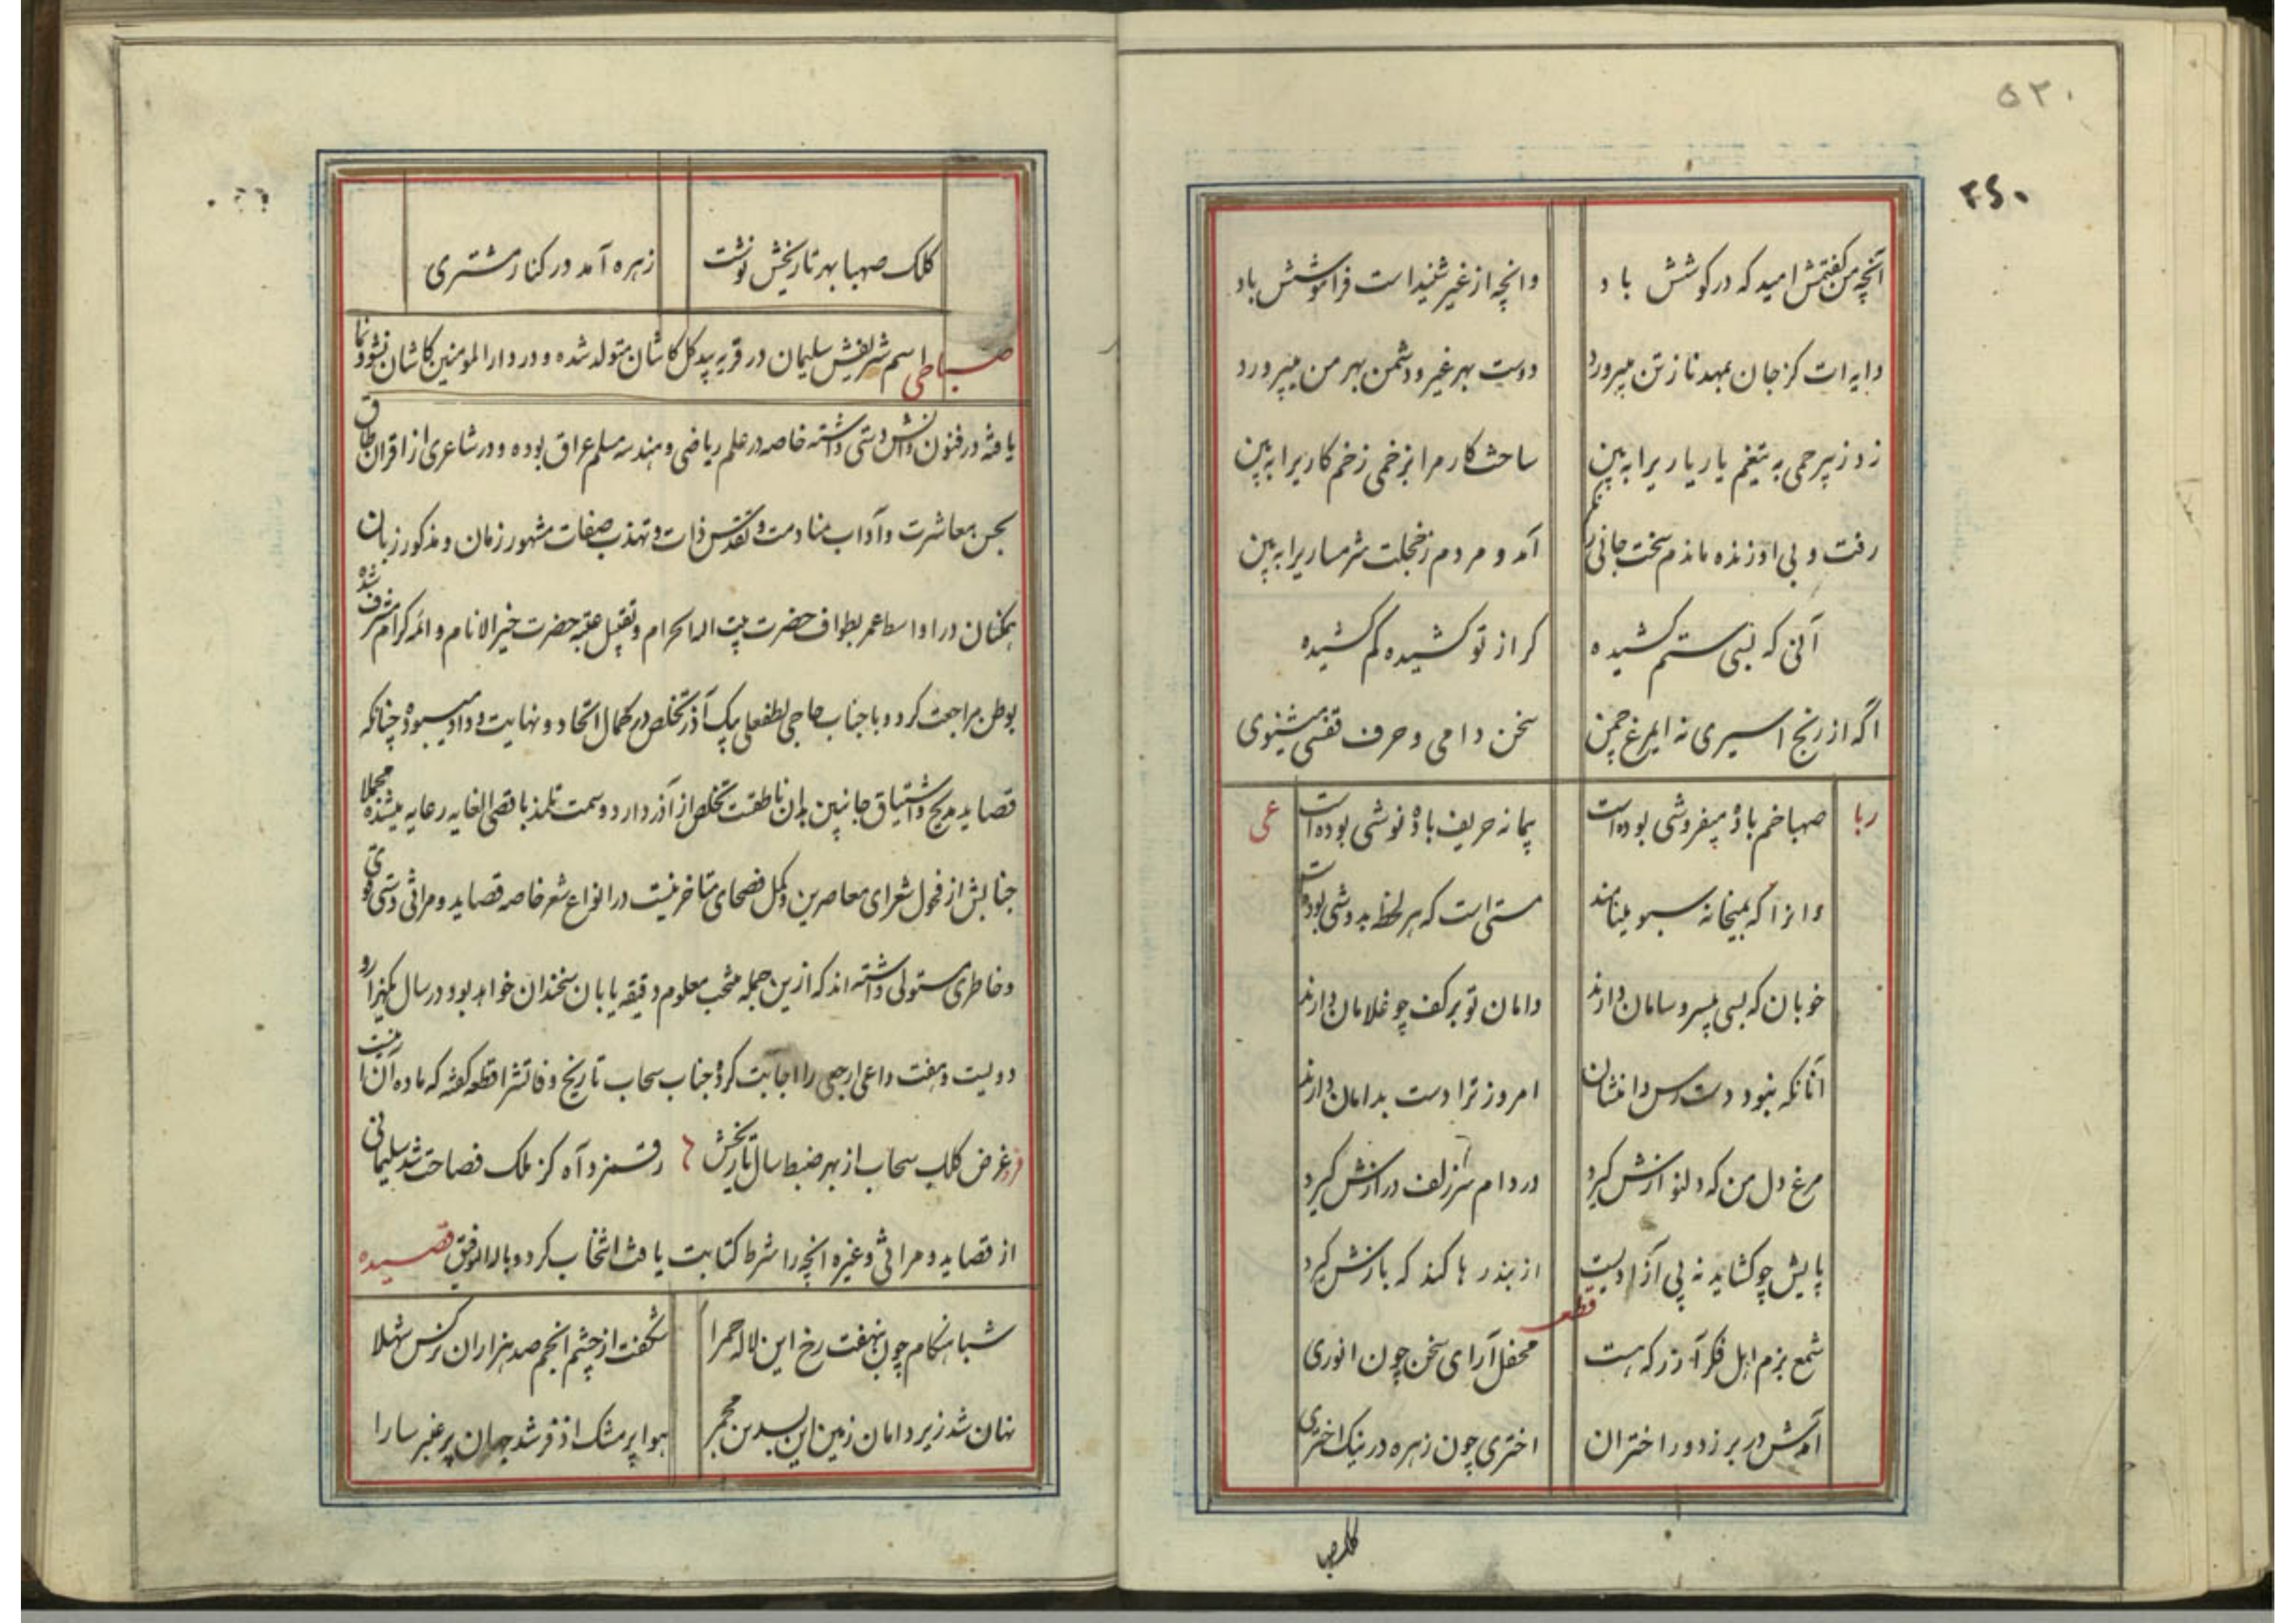 ۵۲۰
۲۶۰
آنچه من گفتمش امید که در گوشش باد وانچه از غیر شنیداست فراموشش باد
دایه ات کز جان بمهد ناز تن میپرورد دوست بهر غیر و دشمن بهر من میپرورد
زد ز بیرحمی به تیغم یار یاریرا به بین ساخت کار مرا بزخمی زخم کاریرا به بین
رفت و بی او زنده ماندم سخت جانی نگر آمد و مردم ز خجلت شرمساریرا به بین
آنی که بسی ستم کشیده گر از تو کشیده کم کشیده
اگه از رنج اسیری نه ایمرغ چمن سخن دامی و حرف قفسی میشنوی
رباعی
صهبا خم باده میفروشی بوده است پیمانه حریف باده نوشی بوده است
وانرا که بمیخانه سبو مینامند مستی است که هر لحظه بدوشی بوده است
خوبان که بسی بیسر و سامان دارند دامان تو بر کف چو غلامان دارند
آنانکه نبود دسترس دامنشان امروز ترا دست بدامان دارند
مرغ دل من که دلنوازش گیرد در دام سر زلف درازش گیرد
پایش چو گشاید نه پی آزادیست از بند رها کند که بازش گیرد
قطعه
شمع بزم اهل فکر آذر که هست محفل آرای سخن چون انوری
آمدش در بر ز دور اختران اختری چون زهره در نیک اختری
کلک ص
کلک صهبا بهر تاریخش نوشت زهره آمد در کنار مشتری
صباحی اسم شریفش سلیمان در قریه بیدگل کاشان متولد شده و در دارالمومنین کاشان نشو و نما
یافته در فنون دانش دستی داشته خاصه در علم ریاضی و هندسه مسلم عراق بوده و در شاعری از اقران طاق
بحسن معاشرت و آداب منادمت و تقدس ذات و تهذب صفات مشهور زمان و مذکور زبان
همکنان در اواسط عمر بطواف حضرت بیت اله الحرام و تقبیل عتبه حضرت خیر الانام و ائمه کرام مشرف شده
بوطن مراجعت کرد و با جناب حاجی لطفعلی بیک آذر تخلص در کمال اتحاد و نهایت وداد میبوده چنانکه
قصاید مدیح و اشتیاق جانبین بدان ناطقست تخلص از آذر دارد و سمت تلمذ باقصی الغایه رعایه میشده مجملا
جنابش از فحول شعرای معاصرین و کمل فصحای متاخرینست در انواع شعر خاصه قصاید و مراثی دستی قوی
و خاطری مستولی داشته اند که ازین جمله منتخب معلوم دقیقه یابان سخندان خواهد بود در سال یکهزار و
دویست و هفت داعی ارجعی را اجابت کرده جناب سحاب تاریخ وفاتشرا قطعه گفته که ماده آن اینست
فرد غرض کلک سحاب از بهر ضبط سال تاریخش رقم زد آه کز ملک فصاحت شد سلیمانی
از قصاید و مراثی و غیره انچه را شرط کتابت یافت انتخاب کرد و باله التوفیق قصیده
شباهنگام چون بنهفت رخ این لاله حمرا شکفت از چشم انجم صد هزاران نرگس شهلا
نهان شد زیر دامان زمین این بسدین مجمر هوا پر مشک اذفر شد جهان پر عنبر سارا